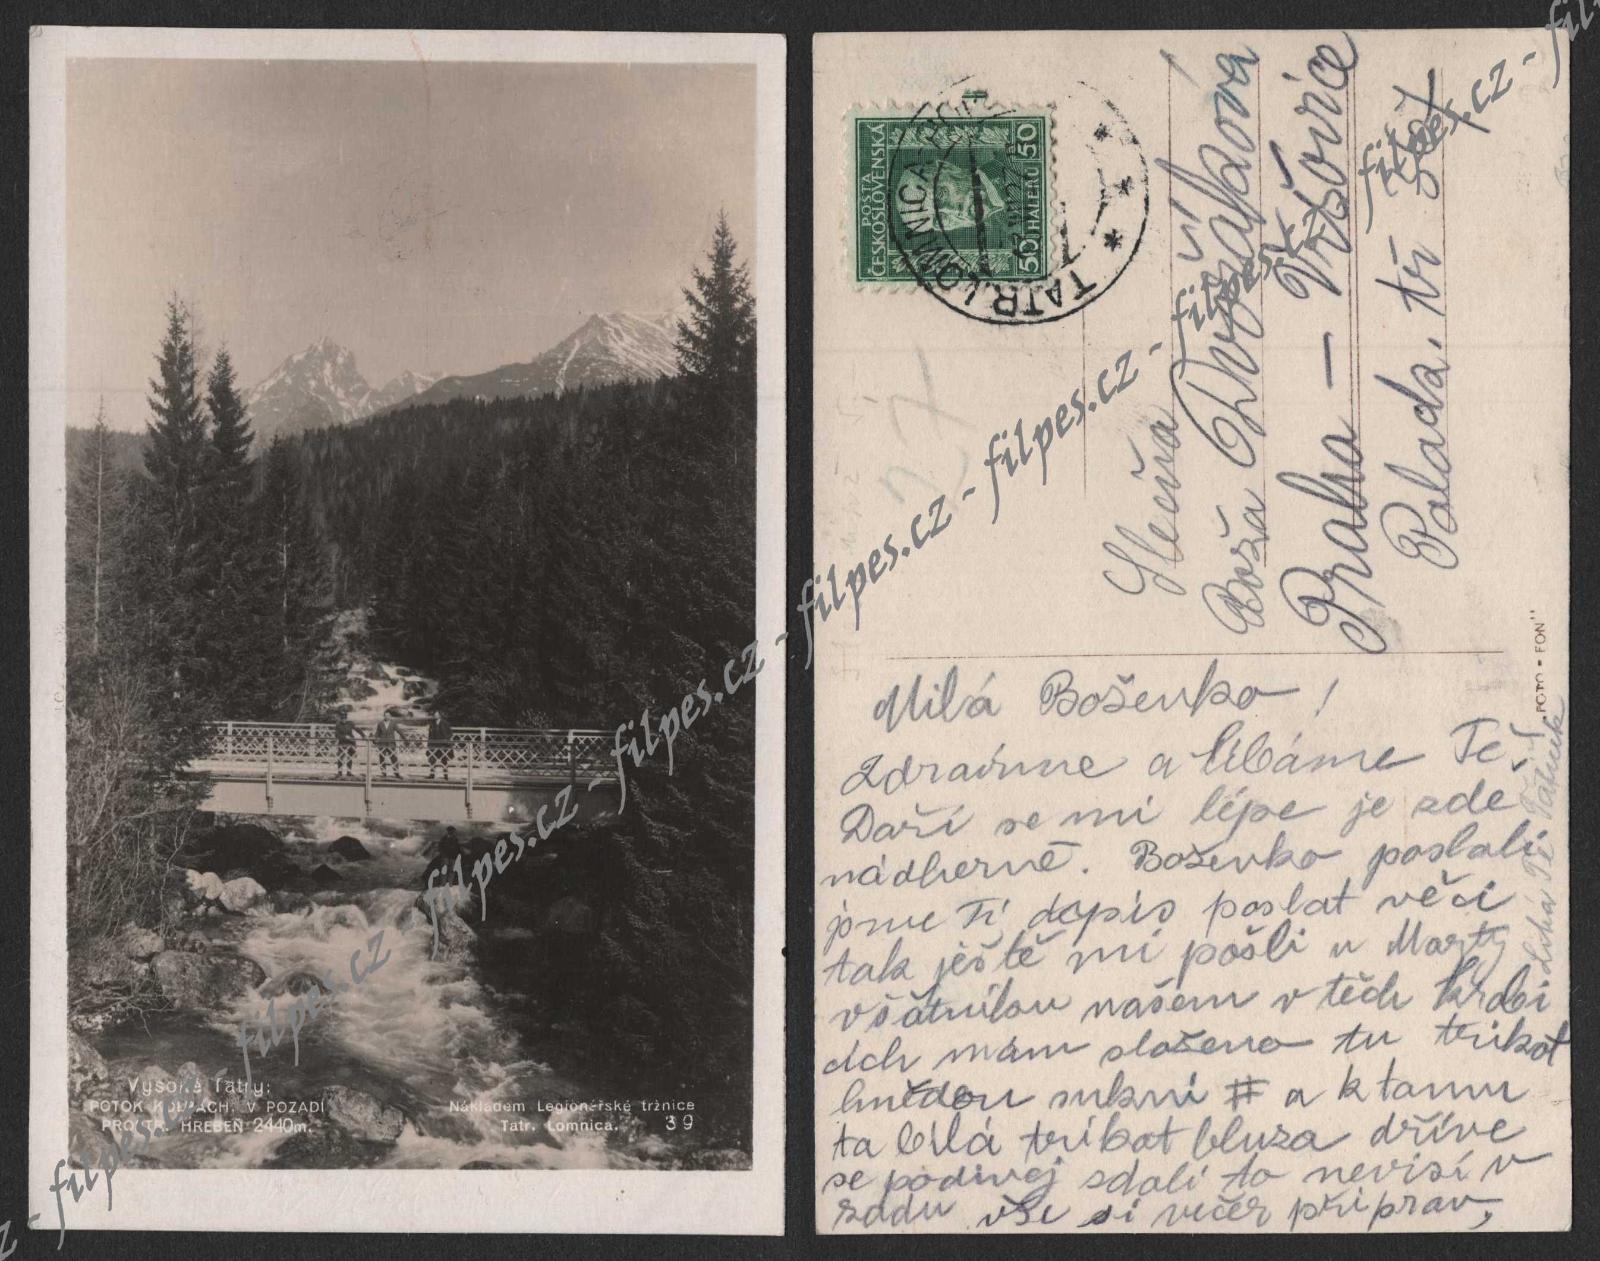 Vysoké Tatry:
POTOK KOLBACH. V POZADÍ
PROSTR. HREBEŇ 2440m.
Nákladem Legionářské tržnice
Tatr. Lomnica. 39
POŠTA
ČESKOSLOVENSKÁ
50 HALÉŘŮ 50
TATR. LOMNICA
Slečna
Boža Dvořáková
Praha – Vršovice
Palada. tř
FOTO-FON"
Milá Boženko!
Zdravíme a líbáme Tě.
Daří se mi lépe je zde
nádherně. Boženko poslali
jsme Ti dopis poslat věci
tak ještě mi pošli u Marty
v šatníku našem v těch krabi
cích mám složeno tu trikot
hnědou sukni # a k tomu
ta bílá trikot bluza dříve
se podívej zdali to nevisí v
zadu vše si večer připrav,
Líbá Tě
filpes.cz - filpes.cz - filpes.cz - filpes.cz - filpes.cz - filpes.cz - filpes.cz - filpes.cz - filpes.cz